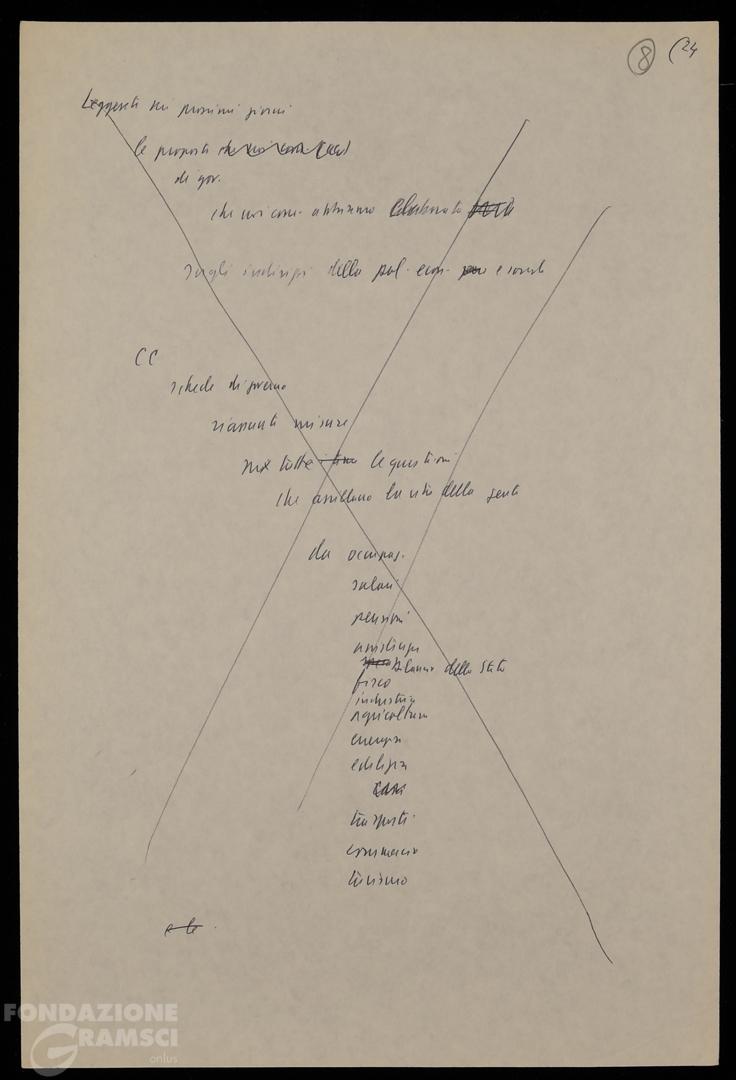 8 (24
Leggerete nei prossimi giorni
le proposte
di gov.
che noi com. abbiamo elaborato
sugli indirizzi della pol. econ. e sociale
CC
schede di governo
riassunti misure
su tutte le questioni
che assillano la vita della gente
da occupaz.
salari
pensioni
bilancio dello Stato
fisco
industria
agricoltura
energia
edilizia
casa
trasporti
commercio
turismo
e le
FONDAZIONE
GRAMSCI
onlus